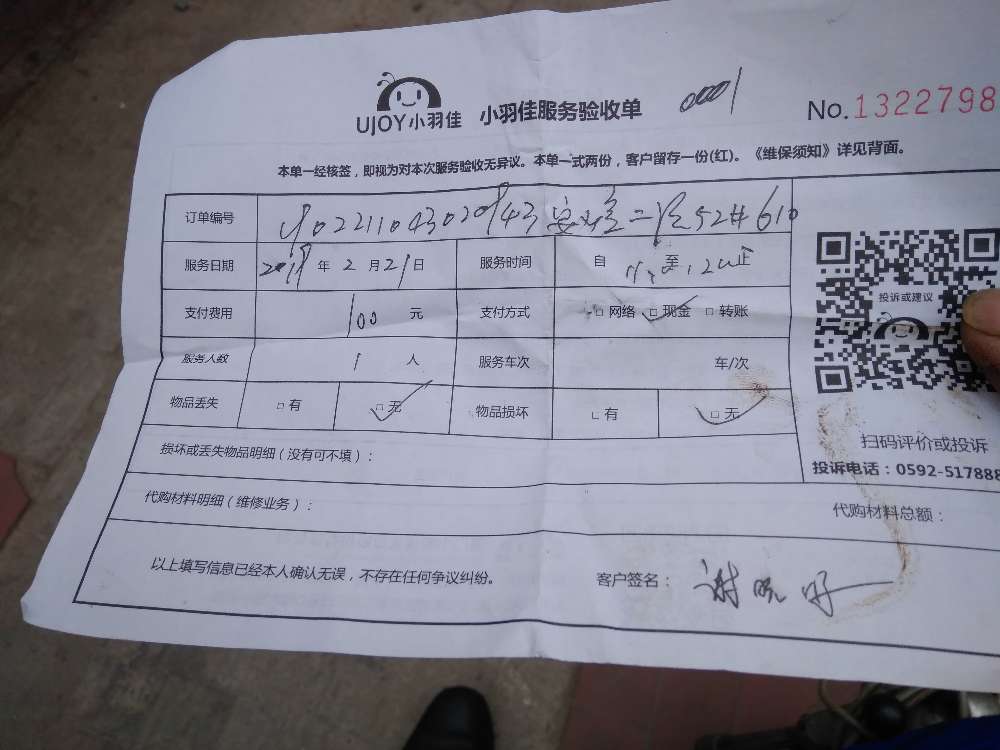 UJOY小羽佳 小羽佳服务验收单 0001 No.1322798
本单一经核签，即视为对本次服务验收无异议。本单一式两份，客户留存一份(红)。《维保须知》详见背面。
订单编号 二 52# 610
服务日期 年 2 月 21 日 服务时间 自 至 止
支付费用 100 元 支付方式 □ 网络 □ 现金 □ 转账
服务人数 1 人 服务车次 车/次
物品丢失 □ 有 □ 无 物品损坏 □ 有 □ 无
投诉或建议
扫码评价或投诉
投诉电话：0592-517888
损坏或丢失物品明细（没有可不填）：
代购材料明细（维修业务）： 代购材料总额：
以上填写信息已经本人确认无误，不存在任何争议纠纷。 客户签名： 谢晓好